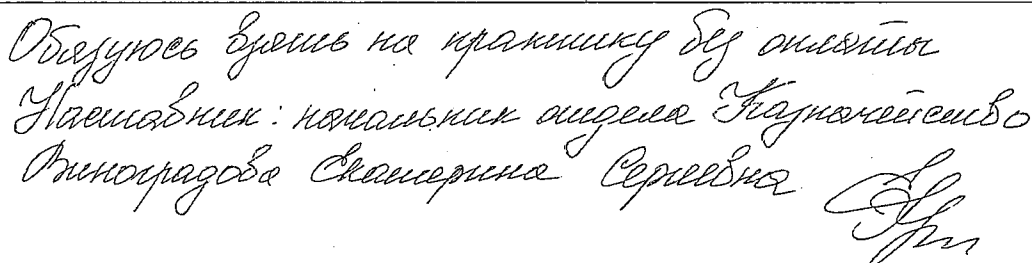 Обязуюсь взять на практику без оплаты
Наставник: начальник отдела Казначейство
Виноградова Екатерина Сергеевна